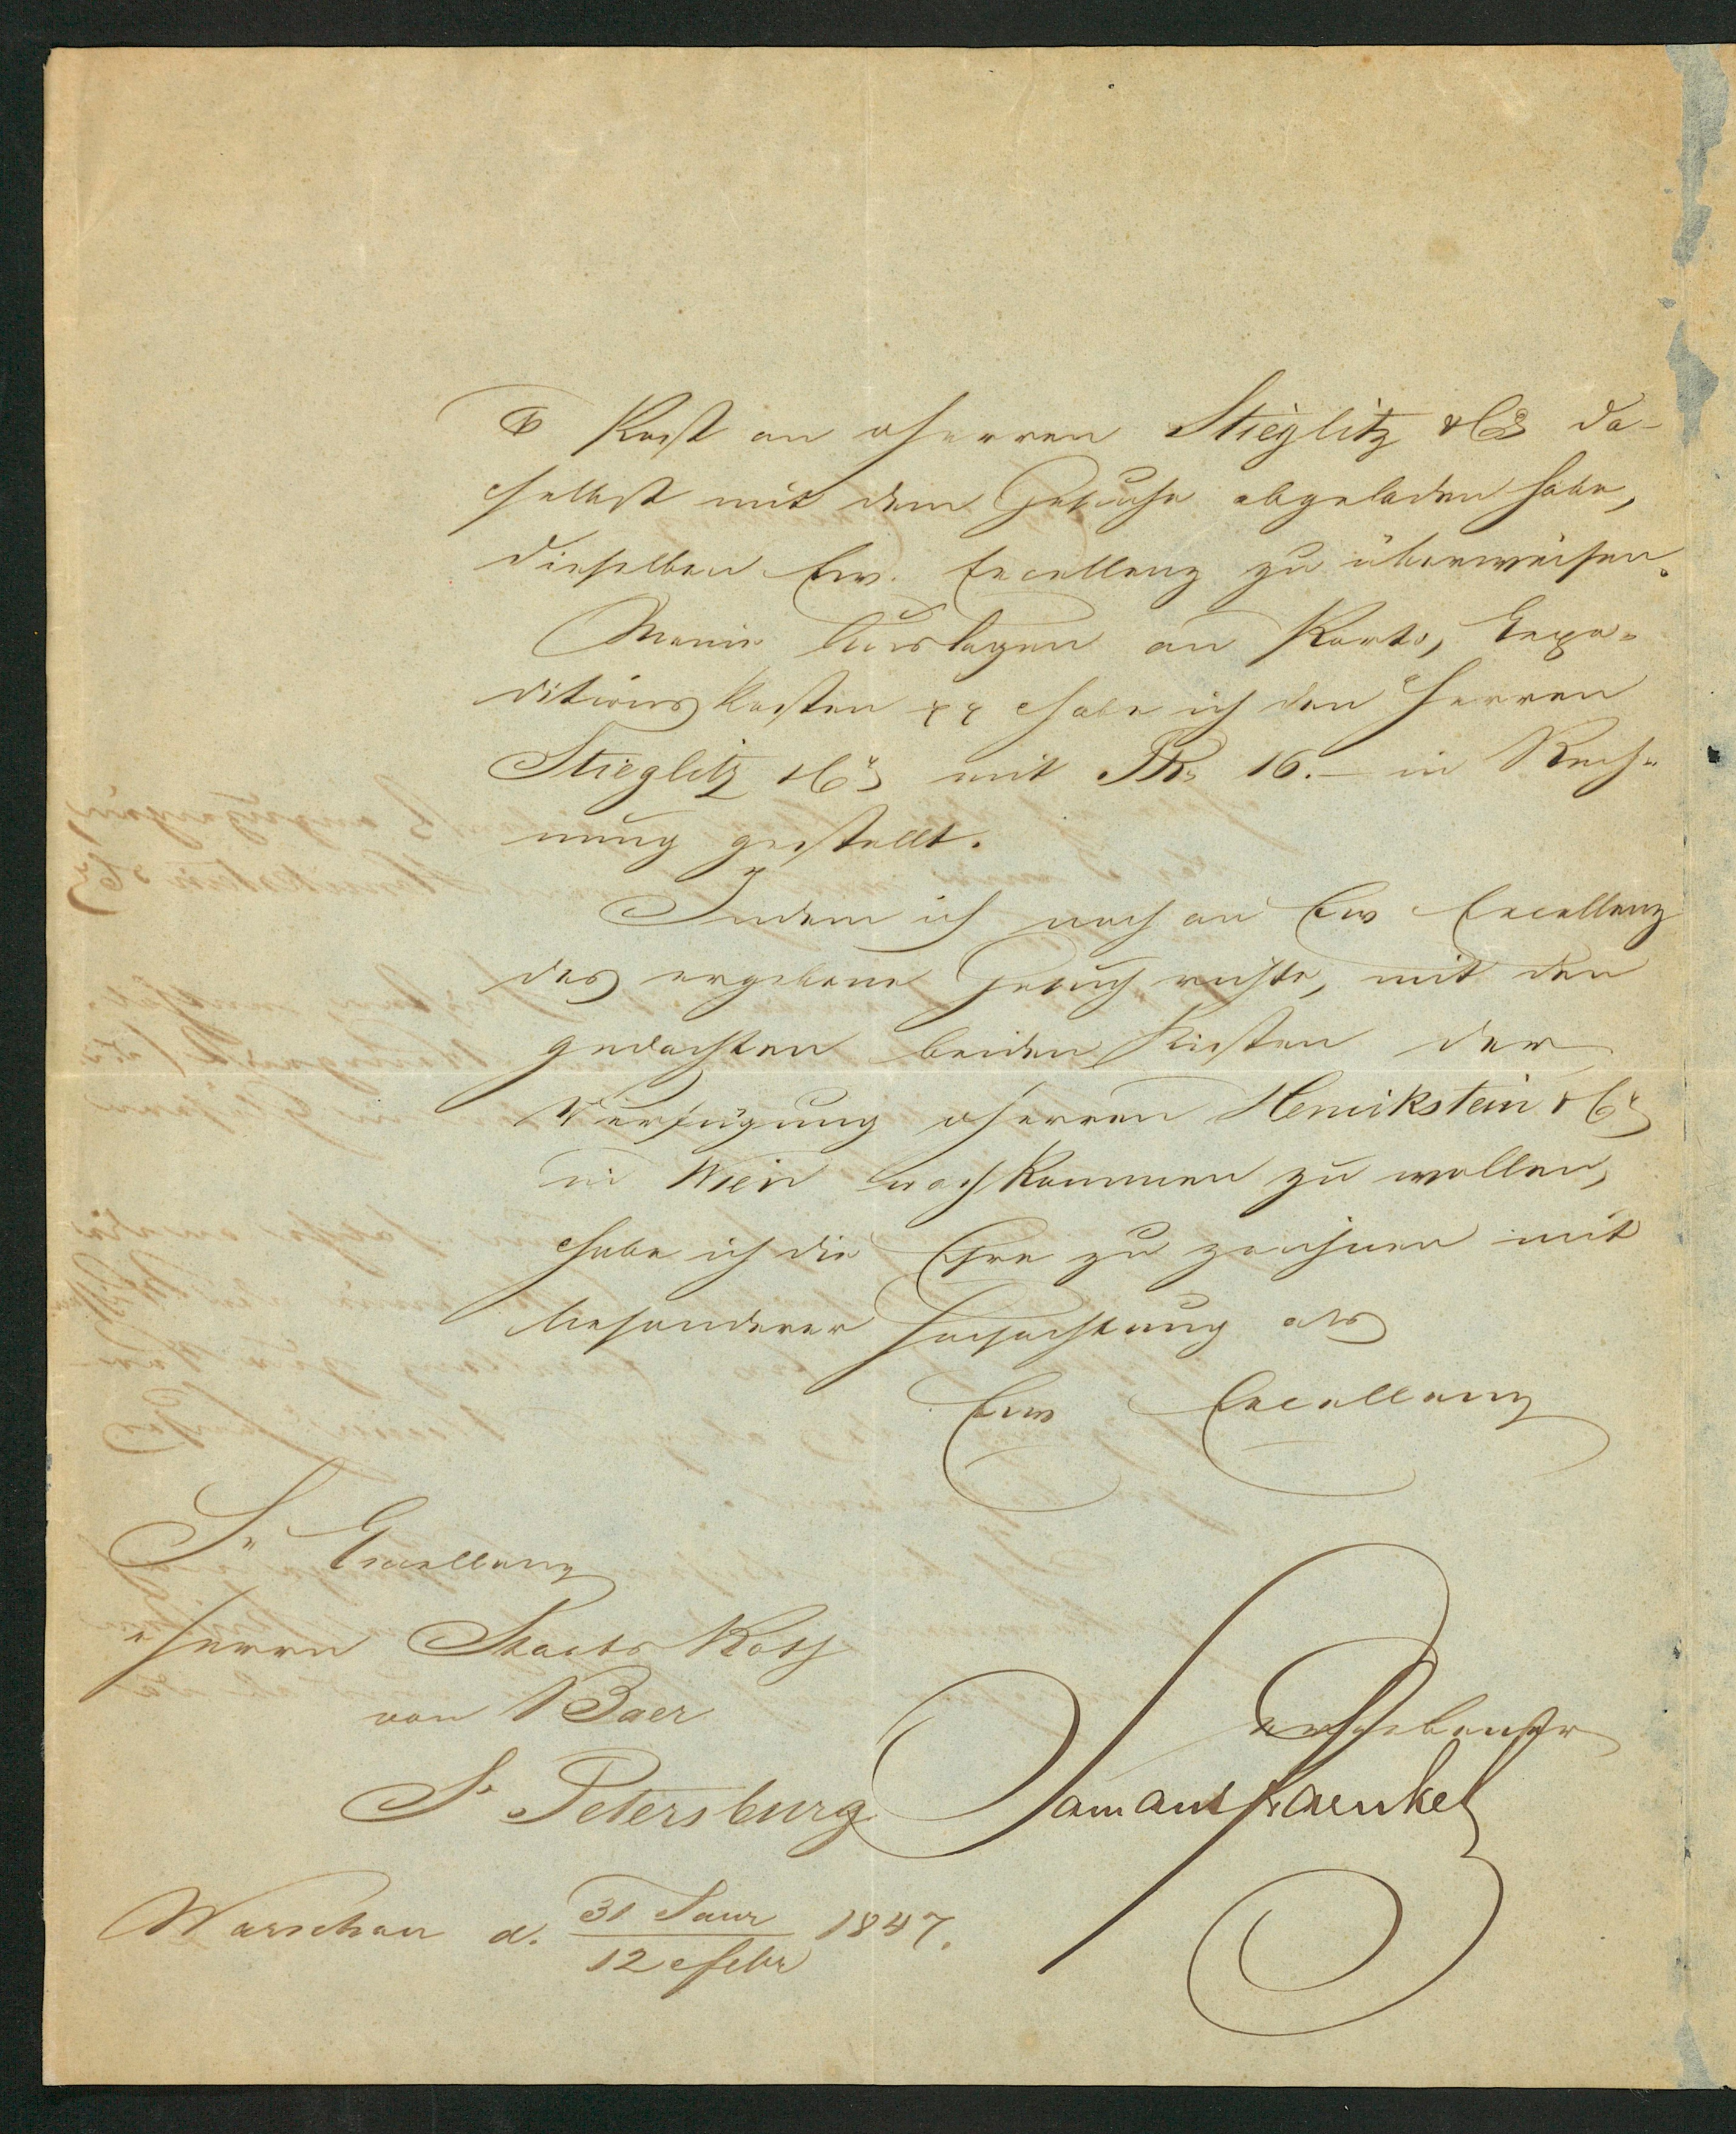 ⅌ Post an Herren Stieglitz & Co da-
selbst mit dem Gesuche abgeladen habe,
dieselben Ew. Excellenz zu überweisen.
Meine Auslagen an Porto, Expe-
ditions Kosten habe ich den Herren
Stieglitz & Co mit SRo 16.— in Rech-
nung gestellt.
Indem ich noch an Ew Excellenz
das ergebene Gesuch richte, mit den
gedachten beiden Kisten der
Verfügung Herren Henikstein & Co
in Wien nachkommen zu wollen,
habe ich die Ehre zu zeichnen mit
besonderer Hochachtung als
Ew Excellenz
Sr Excellenz
Herrn Staats Rath
von Baer
ergebenster
St Petersburg
Samuel Fraenkel
Warschau d. 31 Janr / 12 Febr 1847.